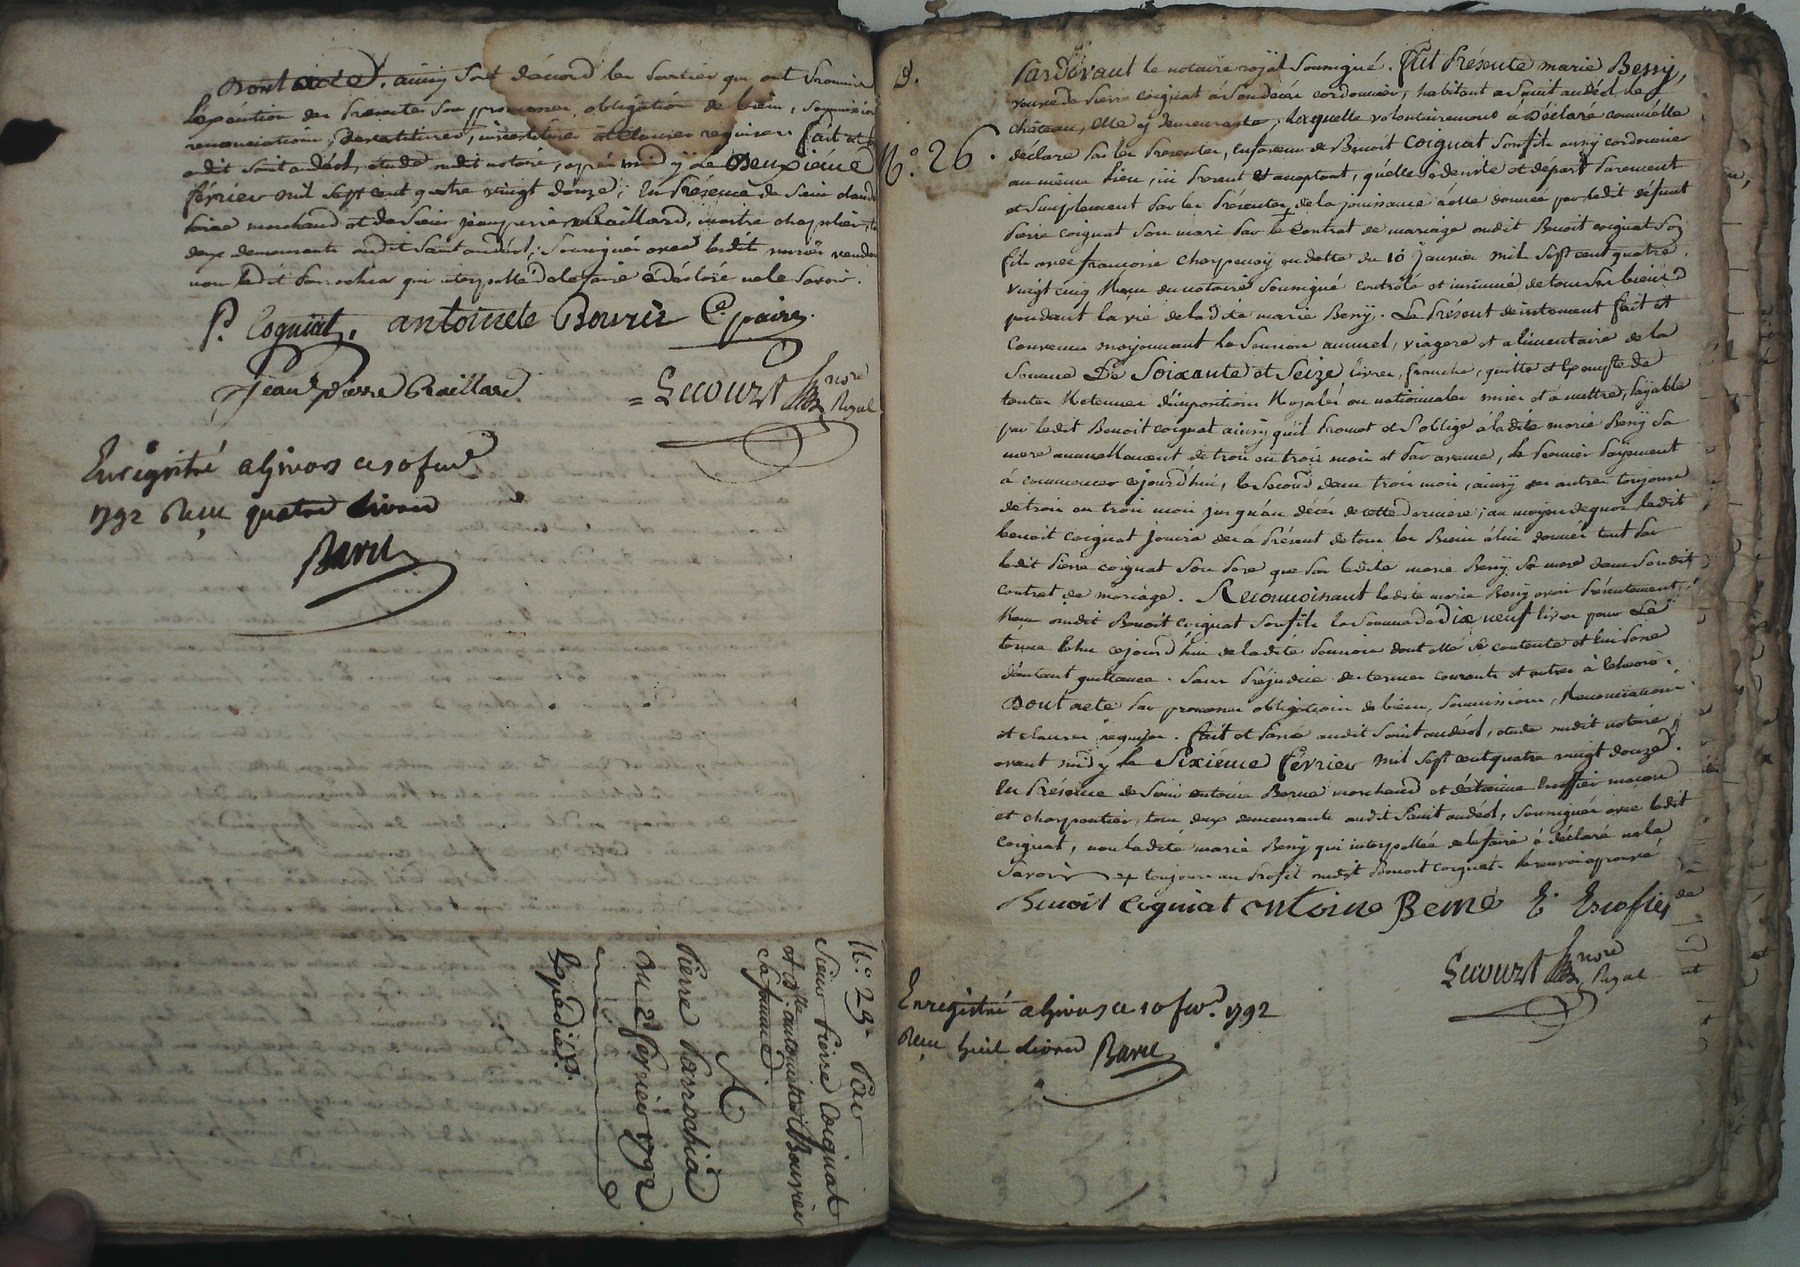 Dont acte, ainsy sont d'acord les parties qui ont promis
L'exécution des présentes sous promesses, obligation de biens, soumissions
renonciations, devestitures, investitures et clauses requises. fait et
audit saint andéol, étude nudit notaire, après midy le Deuxieme
février mil sept cent quatre vingt douze; En Présence de sieur claude
marchand et de sieur jean pierre Chaillard, maitre chapelier, to
deux demeurants audit saint andéol; soussignés avec lesdits mariés vendeu
non ledit Parrochia qui interpellé de le faire a déclaré ne le savoir.
P. Cogniat. antoinete Bourir C. paire
Jean Pierre Chaillard
Lecourt nore Royal
Enregistré a Givors ce 10 fevr
1792 Reçu quatre livres
Baru
N.º 25 Pour
Sieur Pierre Coignat
et dlle. antoinette Bourier
sa femme
A
Pierre Parrochia
Du 2 février 1792
Expédié.
D.
N.º 26.
Pardevant le notaire royal soussigné. fut Présente marie Beny,
veuve de Pierre coignat à son décès cordonnier, habitant a saint andéol le
château, elle y demeurante, laquelle volontairement à Déclaré comm'elle
déclare par les présentes, en faveur de Benoit Coignat son fils aussy cordonnier
au même lieu, ici présent et acceptant, qu'elle se désiste et départ purement
et simplement par les présentes + de la jouissance à elle donnée par ledit défunt
Pierre coignat son mari par le contrat de mariage dudit Benoit coignat son
fils avec francoise Charpenay en datte du 10 Janvier mil sept cent quatre
vingt cinq Reçu du notaire soussigné contrôlé et insinué de tous ses biens
pendant la vie de ladite marie Beny. Le Présent desistement fait et
convenu moyennant la pension annuel, viagere et alimentaire de la
somme De Soixante et Seize livres, franche, quitte et exempte de
toutes Retenues d'impositions Royales ou nationales mises et à mettre, payable
par ledit Benoit coignat ainsy qu'il promet et s'oblige à ladite marie Beny sa
mere annuellement de trois en trois mois et par avance, le premier payement
à commencer cejourd'hui, le second dans trois mois, ainsy des autres toujours
de trois en trois mois jusqu'au décès de cette derniere; au moyen de quoi ledit
benoit coignat jouira dès à présent de tous les Biens à lui donnés tant par
ledit Pierre coignat son pere que par ladite marie Beny sa mere dans sondit
contrat de mariage. Reconnoissant ladite marie Beny avoir présentement
Reçu dudit Benoit coignat son fils la somme de Dix neuf livres pour Le
terme Echu cejourd'hui de ladite pension dont elle se contente et lui passe
d'autant quittance. sans Préjudice des termes courants et autres à échoir.
Dont acte par promesses obligations de biens, soumissions, Renonciations
et clauses requises. fait et passé audit saint andéol, étude nudit notaire,
avant midy le Sixieme février mil sept cent quatre vingt douze.
En Présence de sieur antoine Berne marchand et d'étienne Escoffier macon
et charpentier, tous deux demeurants audit saint andéol, soussignés avec ledit
coignat, non ladite marie Beny qui interpellée de le faire à déclaré ne le
savoir + toujours au profit nudit Benoit coignat. le renvoi approuvé
Benoit cogniat antoine Berne E. Escofier
Lecourt nore Royal
Enregistré a Givors ce 10 fevr. 1792
Reçu huit livres Baru